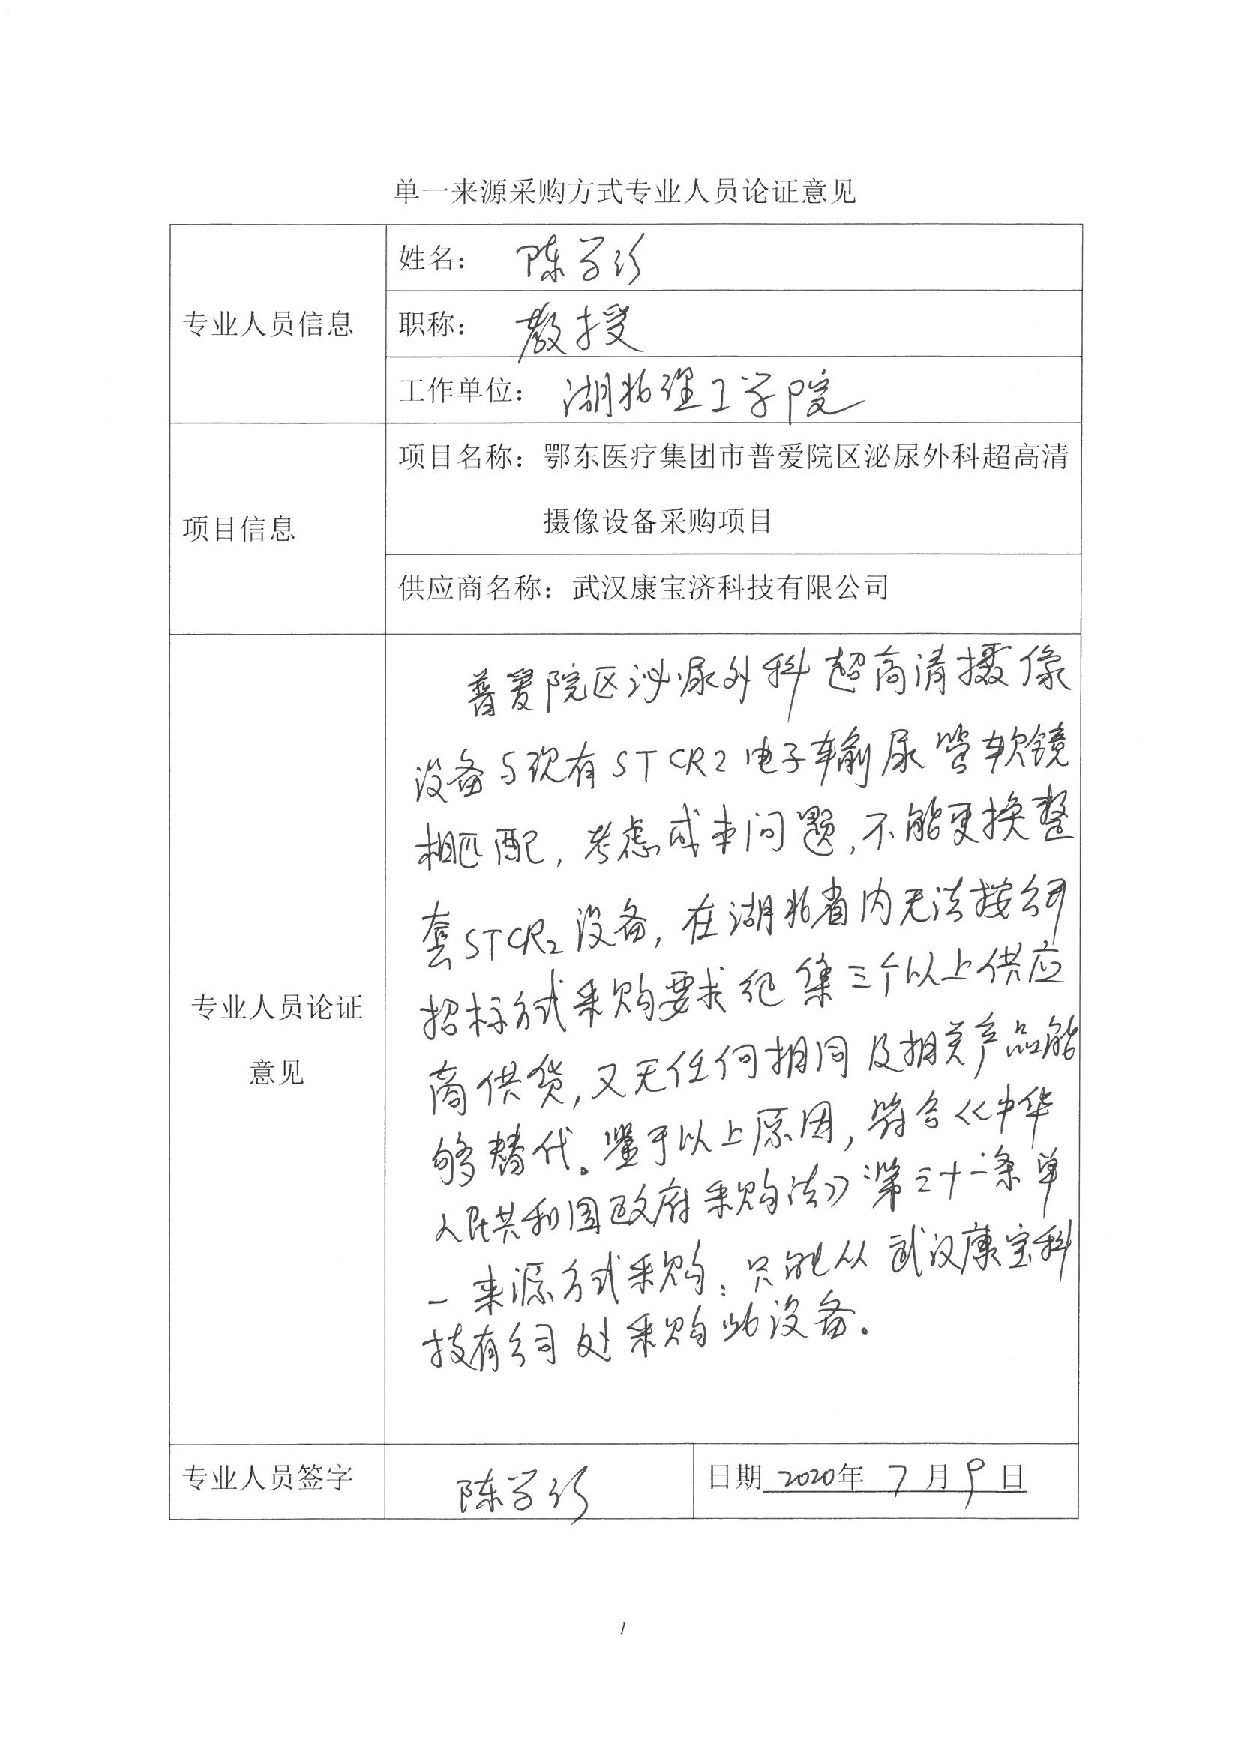 单一来源采购方式专业人员论证意见
专业人员信息
姓名： 陈学衍
职称： 教授
工作单位： 湖北理工学院
项目信息
项目名称：鄂东医疗集团市普爱院区泌尿外科超高清
摄像设备采购项目
供应商名称：武汉康宝济科技有限公司
专业人员论证
意见
普爱院区泌尿外科超高清摄像
设备与现有STCR2电子输尿管软镜
相匹配，考虑成本问题，不能更换整
套STCR2设备，在湖北省内无法按公开
招标方式采购要求 集三个以上供应
商供货，又无任何相同及相关产品能
够替代。鉴于以上原因，符合《中华
人民共和国政府采购法》第三十一条单
一来源方式采购，只能从武汉康宝科
技有公司处采购此设备。
专业人员签字
陈学衍
日期 2020年 7 月 9 日
1